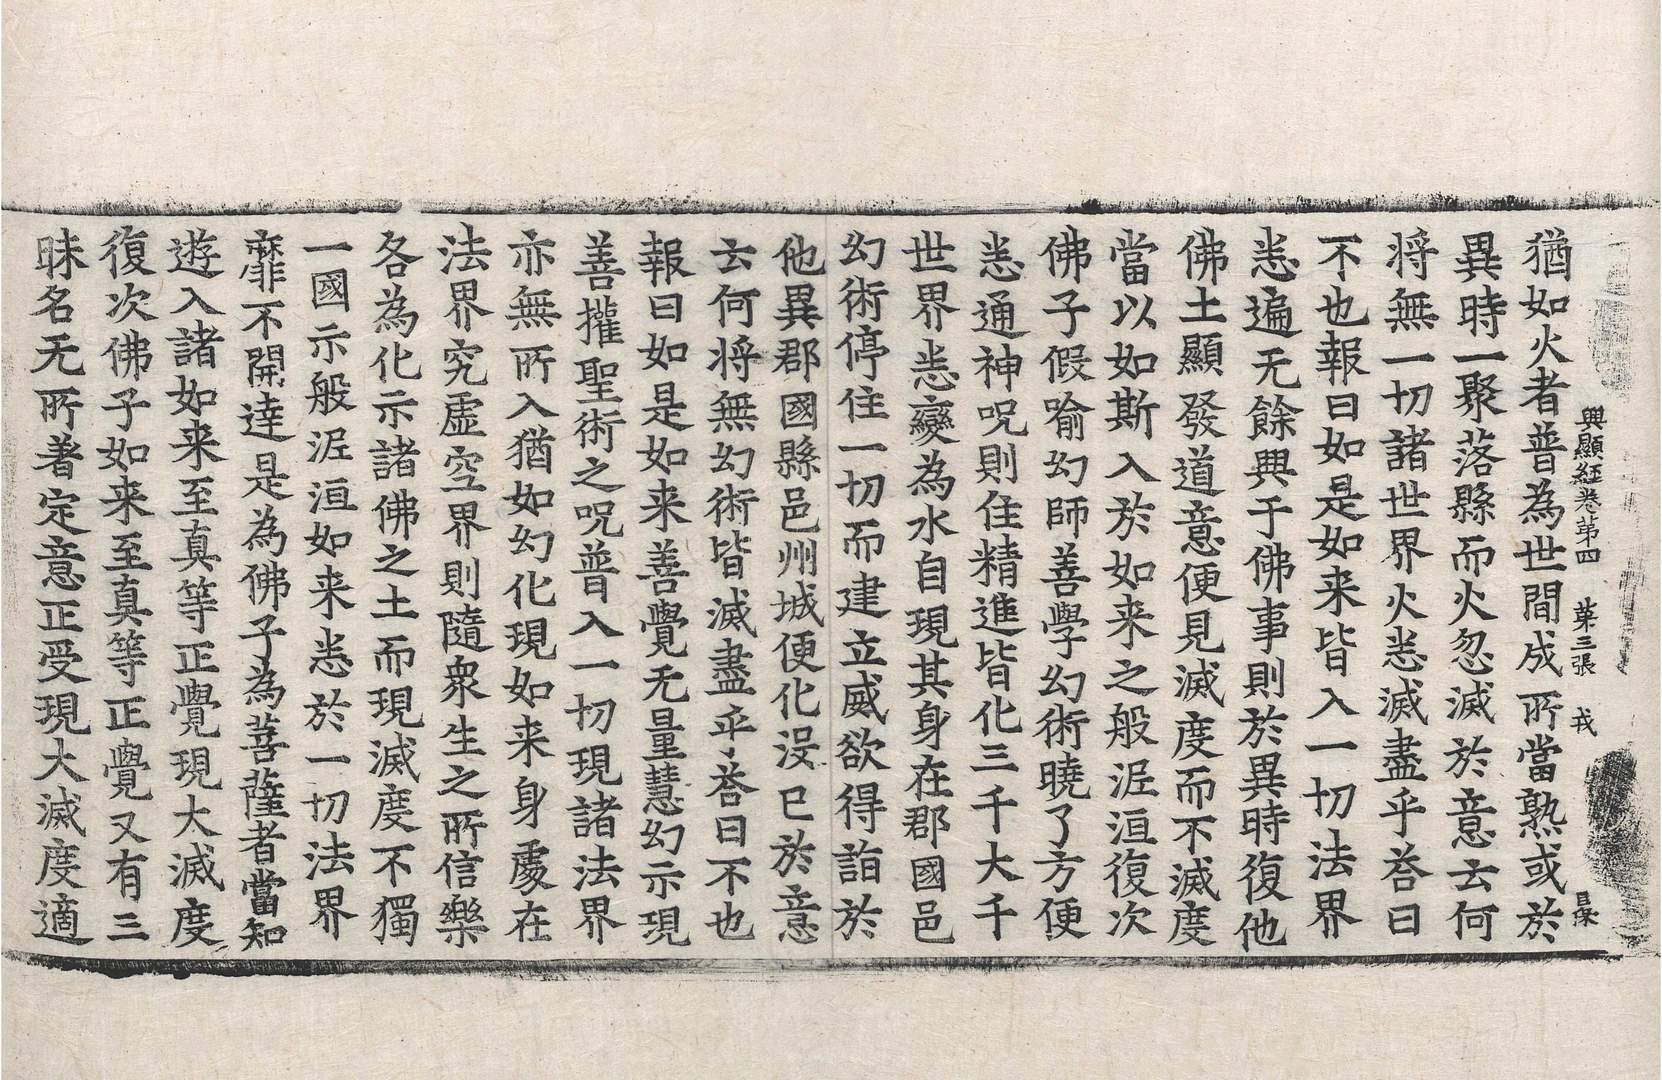 興顯經卷第四 第三張 戎
猶如火者普為世間成所當熟或於
異時一聚落縣而火忽滅於意云何
将無一切諸世界火悉滅盡乎荅曰
不也報曰如是如来皆入一切法界
悉遍无餘興于佛事則於異時復他
佛土顯發道意便見滅度而不滅度
當以如斯入於如来之般泥洹復次
佛子假喻幻師善學幻術曉了方便
悉通神呪則住精進皆化三千大千
世界悉變為水自現其身在郡國邑
幻術停住一切而建立威欲得詣於
他異郡國縣邑州城便化沒已於意
云何将無幻術皆滅盡乎荅曰不也
報曰如是如来善覺无量慧幻示現
善攉聖術之呪普入一切現諸法界
亦無所入猶如幻化現如来身處在
法界究虛空界則隨衆生之所信樂
各為化示諸佛之土而現滅度不獨
一國示般泥洹如来悉於一切法界
靡不開達是為佛子為菩薩者當知
遊入諸如来至真等正覺現大滅度
復次佛子如来至真等正覺又有三
昧名无所著定意正受現大滅度適